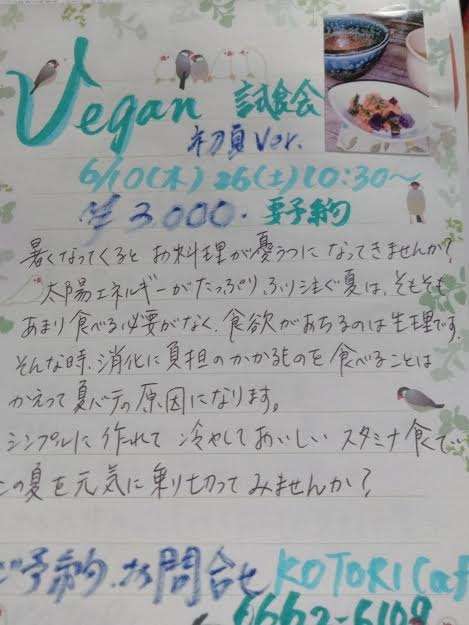 Vegan 試食会
初夏 Ver.
6/10(木) 26(土) 10:30～
¥3,000. 要予約
暑くなってくると お料理が憂うつに なってきませんか?
太陽エネルギーがたっぷり ふり注ぐ夏は、そもそも
あまり食べる必要がなく、食欲がおちるのは生理です。
そんな時、消化に負担のかかるものを食べることは
かえって夏バテの原因になります。
シンプルに作れて 冷やしておいしい スタミナ食で
この夏を元気に乗り切ってみませんか?
ご予約・お問合せ KOTORI Caf
6662-6109